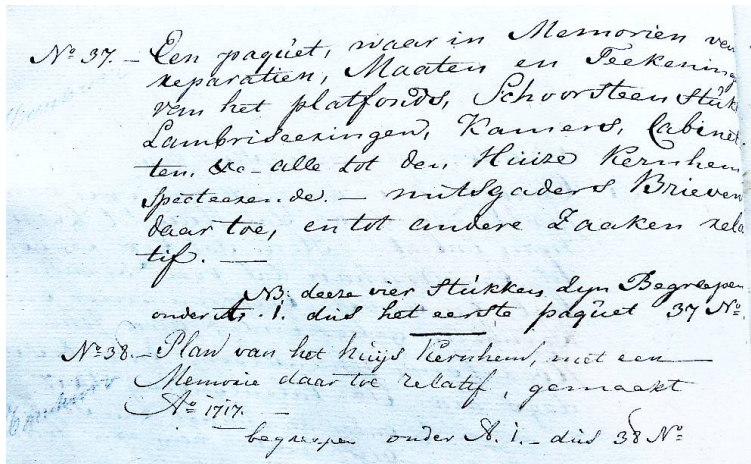 No 37. — Een paquet, waar in Memorien van
reparatien, Maaten en Teekening
van het platfonds, Schoorsteen Stuk
Lambriseeringen, Kamers, Cabinet
ten, &c — alle tot den Huize Kernhem
specteerende. — mitsgaders Brieven
daar toe, en tot andere Zaaken rela
tif. —
NB: deeze vier stukken zyn Begreepen
onder A. 1. dus het eerste paquet 37 No
No 38. — Plan van het huys Kernhem, met een
Memorie daar toe relatif, gemaakt
Ao 1717. —
begreepen onder A. 1. — dus 38 No